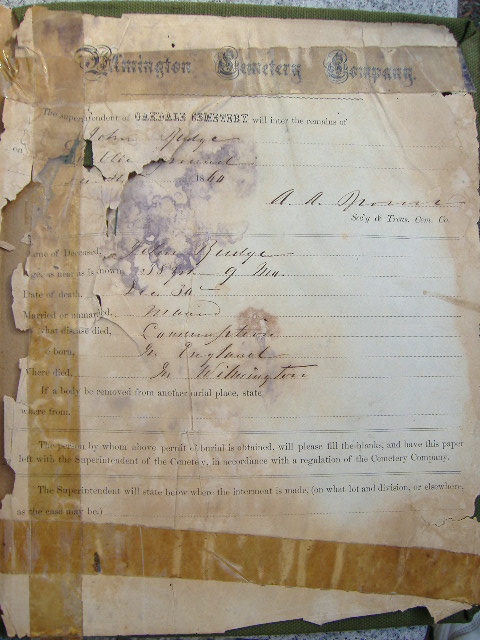 Wilmington Cemetery Company.
The Superintendent of OAKDALE CEMETERY will inter the remains of
John Rudge
on
1860
Sec'y & Treas. Cem. Co.
Name of Deceased, John Rudge
Age, as near as is known, 38 yrs 9 Mo.
Date of death, Dec 30
Married or unmarried,
what disease died, Consumption
born, In England
Where died, In Wilmington
If a body be removed from another burial place, state
where from,
The person by whom above permit of burial is obtained, will please fill the blanks, and have this paper
left with the Superintendent of the Cemetery, in accordance with a regulation of the Cemetery Company.
The Superintendent will state below where the interment is made, (on what lot and division, or elsewhere,
as the case may be.)